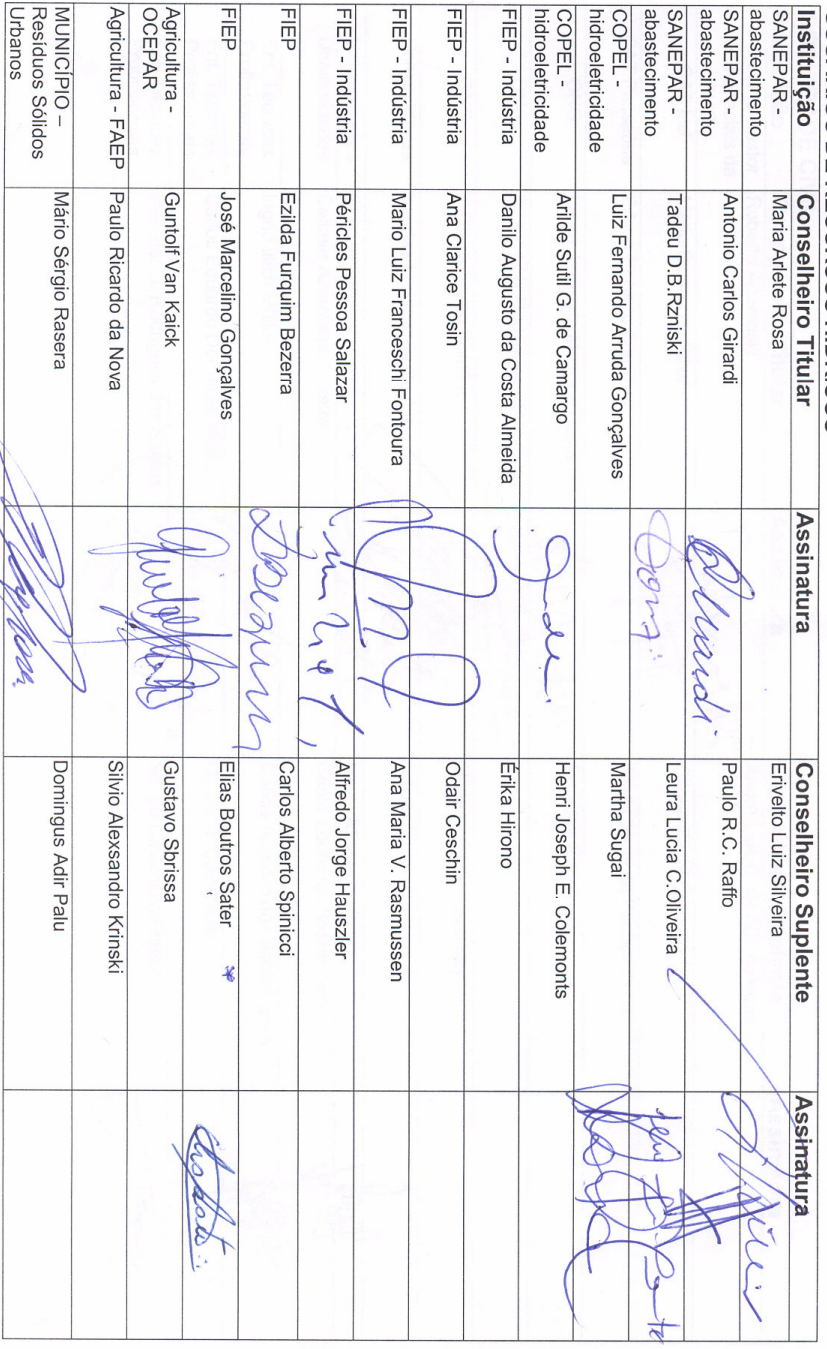 Instituição Conselheiro Titular Assinatura Conselheiro Suplente Assinatura
SANEPAR - abastecimento Maria Arlete Rosa Erivelto Luiz Silveira
SANEPAR - abastecimento Antonio Carlos Girardi Paulo R.C. Raffo
SANEPAR - abastecimento Tadeu D.B.Rzniski Leura Lucia C.Oliveira
COPEL - hidroeletricidade Luiz Fernando Arruda Gonçalves Martha Sugai
COPEL - hidroeletricidade Arilde Sutil G. de Camargo Henri Joseph E. Colemonts
FIEP - Indústria Danilo Augusto da Costa Almeida Érika Hirono
FIEP - Indústria Ana Clarice Tosin Odair Ceschin
FIEP - Indústria Mario Luiz Franceschi Fontoura Ana Maria V. Rasmussen
FIEP - Indústria Péricles Pessoa Salazar Alfredo Jorge Hauszler
FIEP Ezilda Furquim Bezerra Carlos Alberto Spinicci
FIEP José Marcelino Gonçalves Elias Boutros Sater
Agricultura - OCEPAR Guntolf Van Kaick Gustavo Sbrissa
Agricultura - FAEP Paulo Ricardo da Nova Silvio Alexsandro Krinski
MUNICÍPIO – Resíduos Sólidos Urbanos Mário Sérgio Rasera Domingus Adir Palu